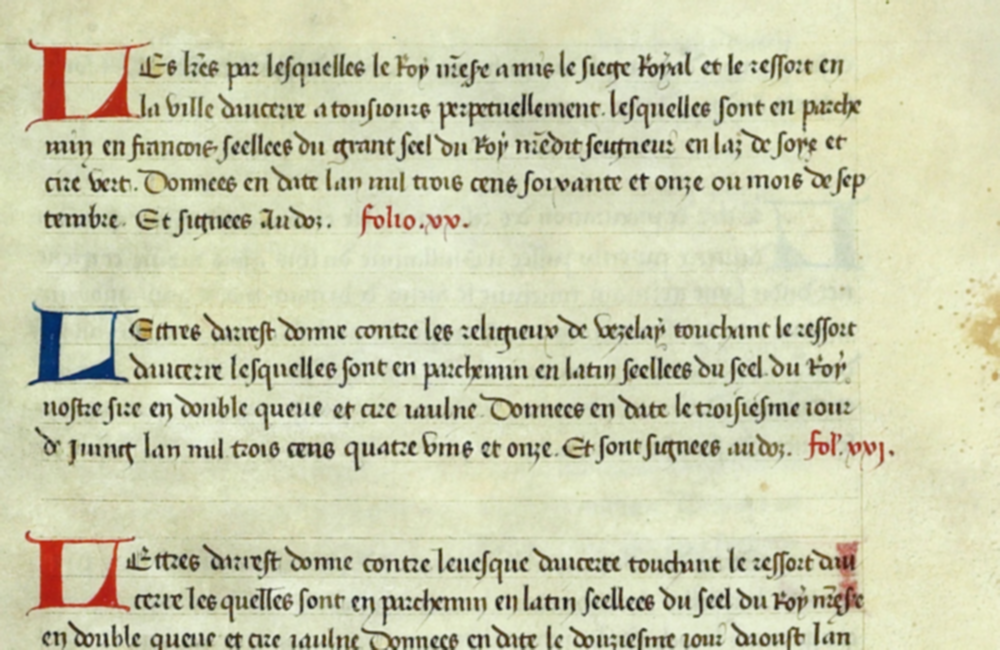 LEs lr̃es par lesquelles le Roy nr̃e sr̃e a mis le siege Royal et le ressort en
la ville daucerre a tousiours perpetuellement. lesquelles sont en parche
min en francois seellees du grant seel du Roy nr̃edit seigneur en laz de soye et
cire vert. Donnees en date lan mil trois cens soixante et onze ou mois de sep
tembre. Et signees Audoz. folio.xv.
LEttres darrest donne contre les religieux de vezelay touchant le ressort
daucerre lesquelles sont en parchemin en latin seellees du seel du Roy
nostre sire en double queue et cire iaulne Donnees en date le troisiesme iour
de Juing lan mil trois cens quatre vins et onze. Et sont signees audoz. fol'. xvj.
LEttres darrest donne contre leuesque daucerre touchant le ressort dau
cerre les quelles sont en parchemin en latin seellees du seel du Roy nr̃e sr̃e
en double queue et cire iaulne Donnees en date le douziesme iour daoust lan